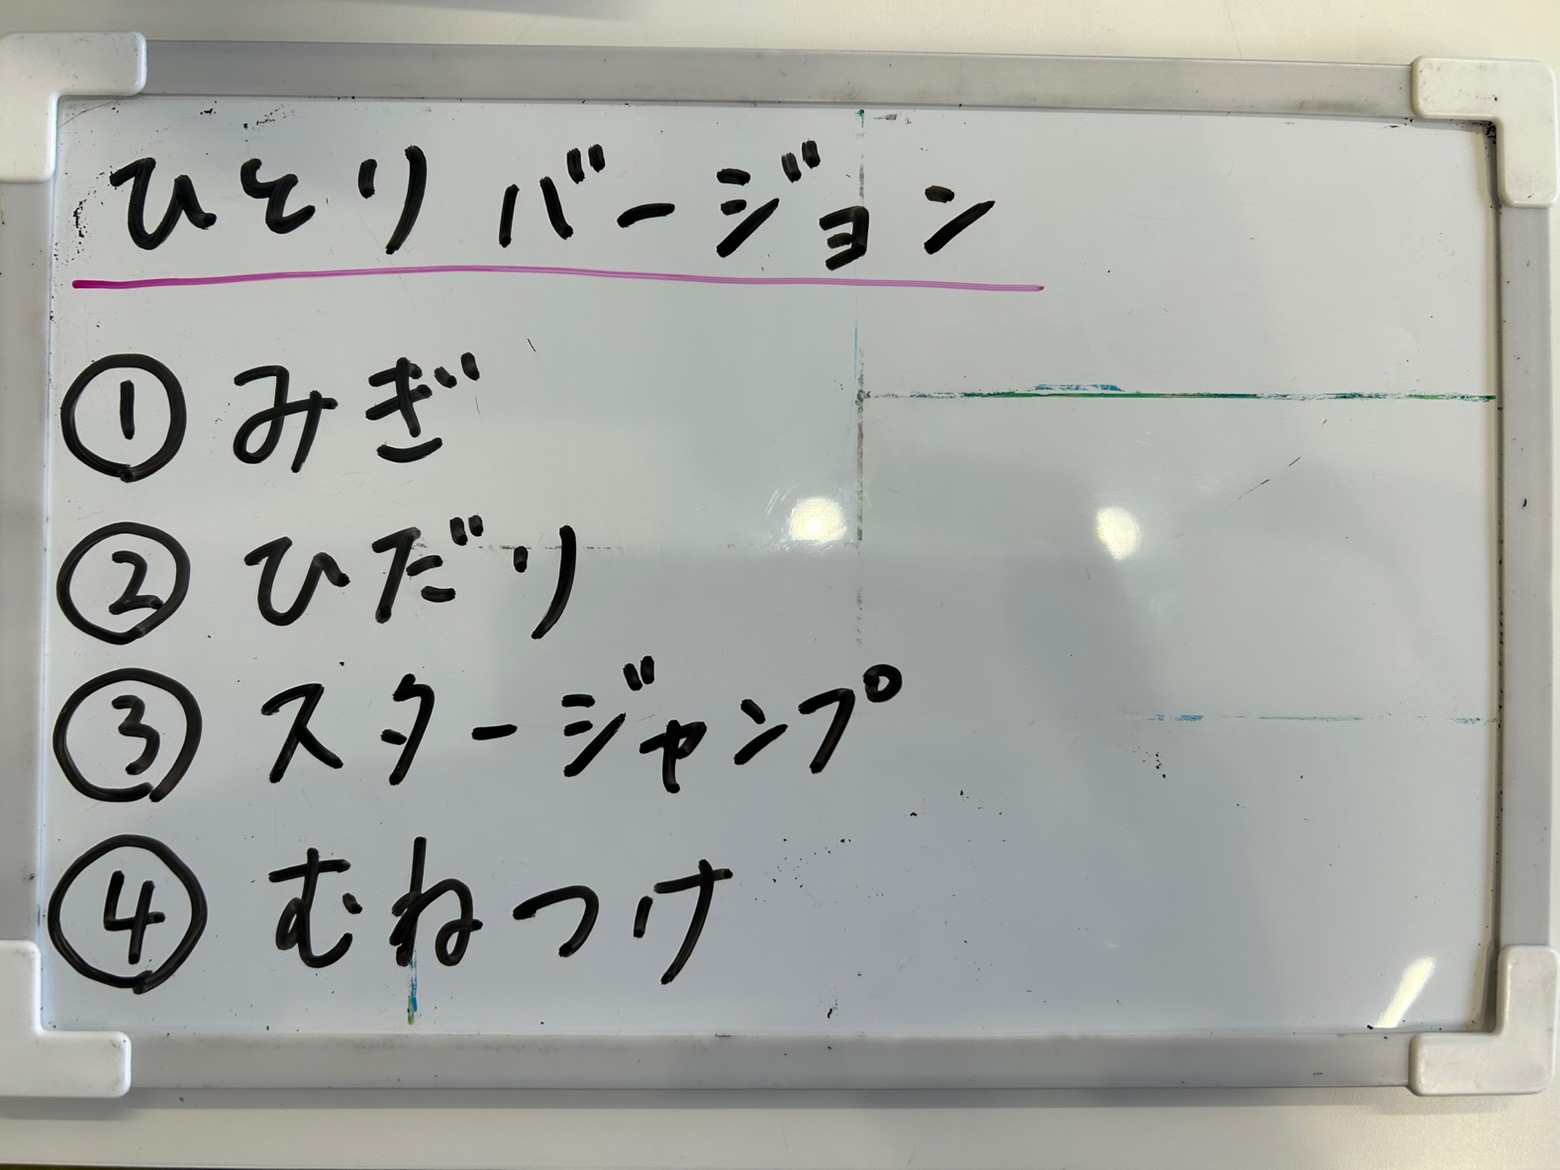 ひとりバージョン
① みぎ
② ひだり
③ スタージャンプ
④ むねつけ